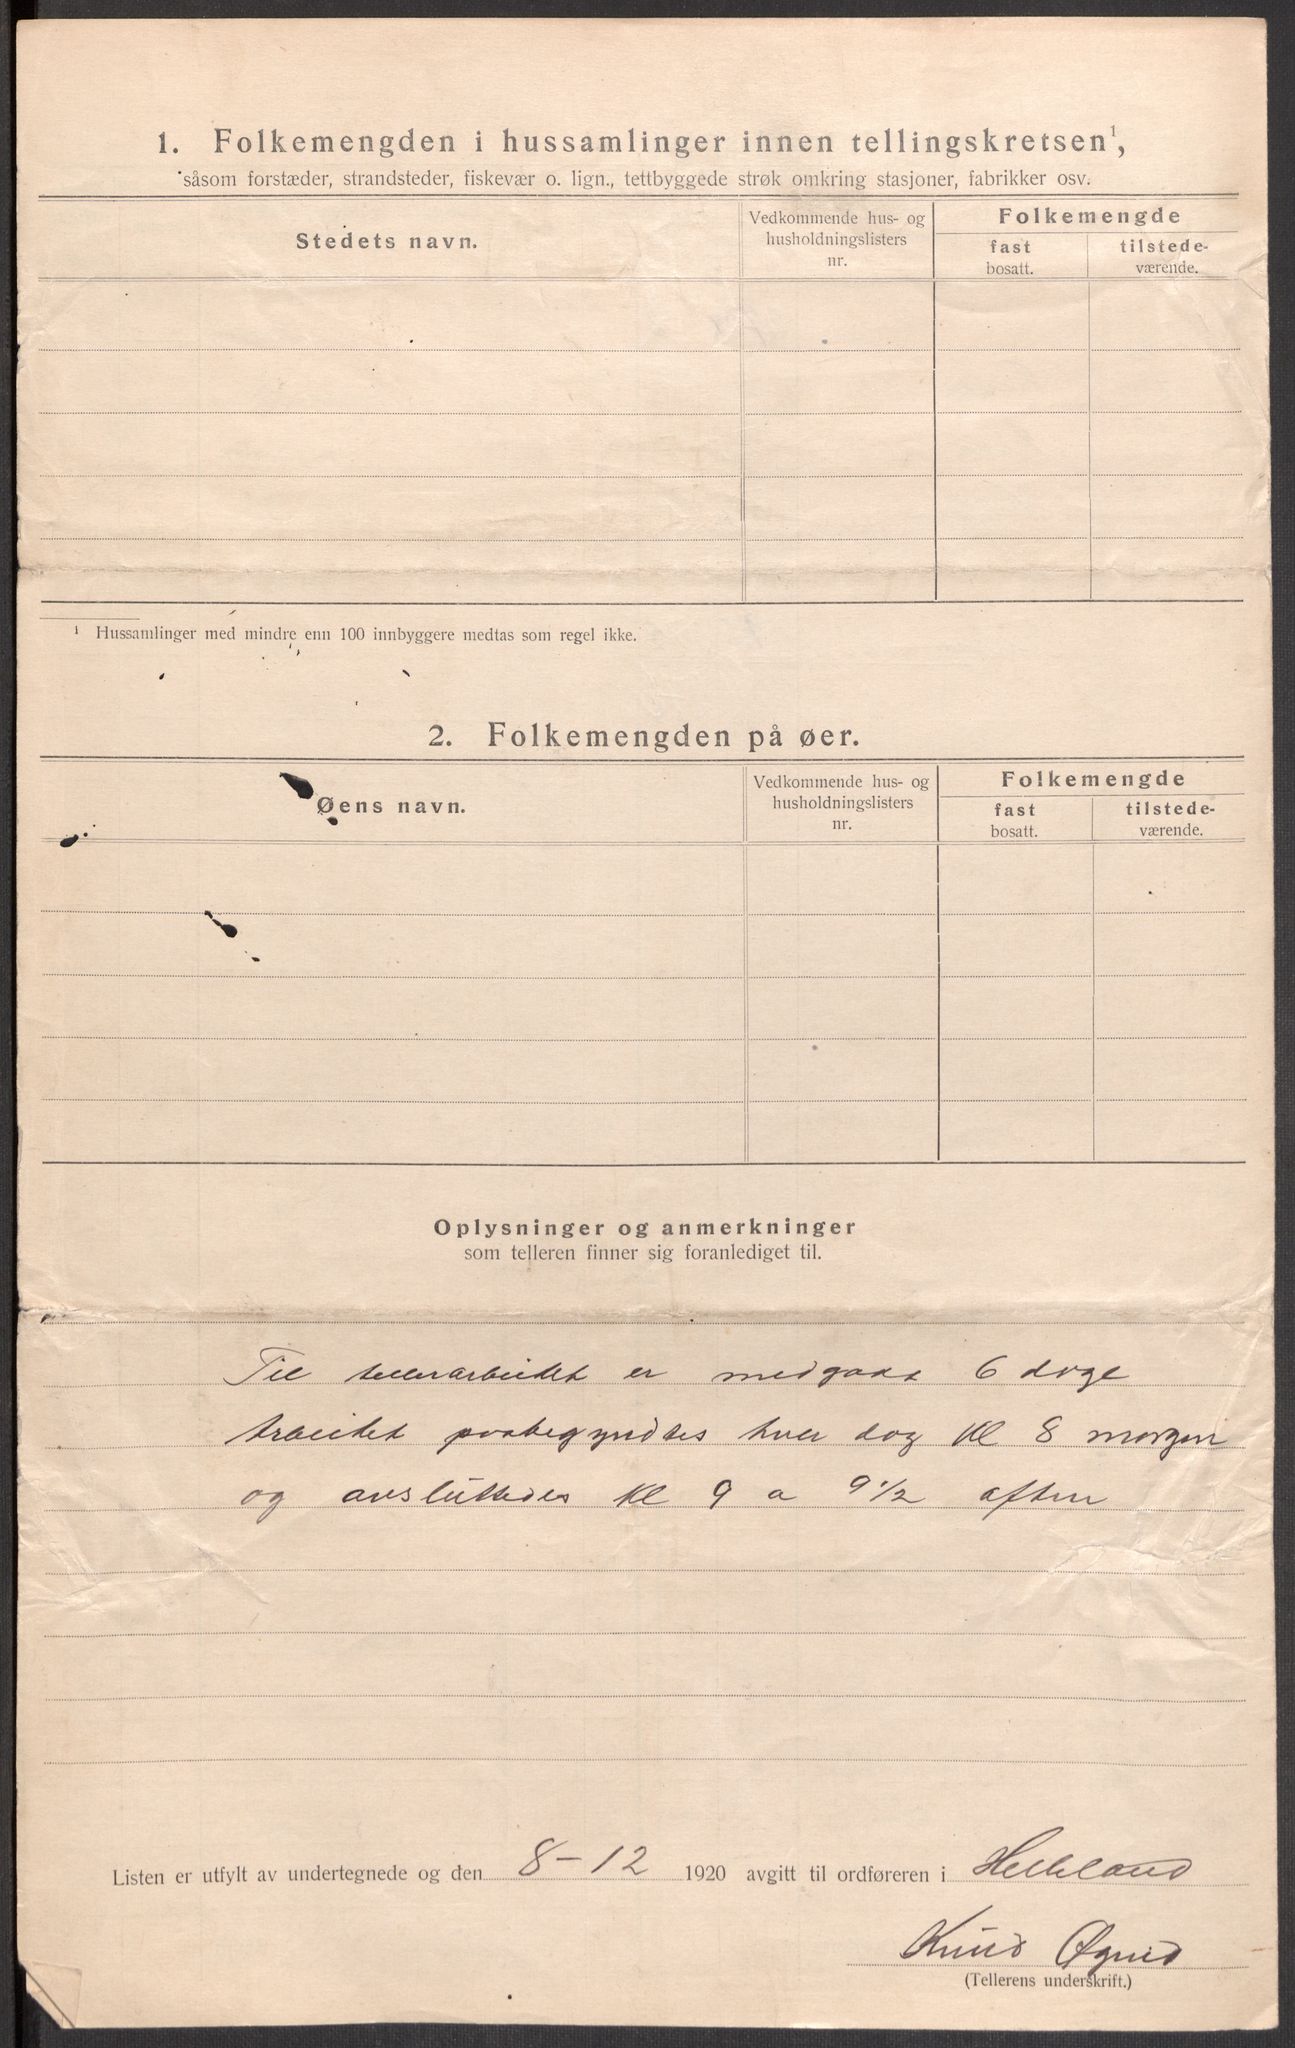 1. Folkemengden i hussamlinger innen tellingskretsen¹,
såsom forstæder, strandsteder, fiskevær o. lign., tettbyggede strøk omkring stasjoner, fabrikker osv.
Stedets navn.
Vedkommende hus- og
husholdningslisters
nr.
Folkemengde
fast
bosatt.
tilstede-
værende.
¹ Hussamlinger med mindre enn 100 innbyggere medtas som regel ikke.
2. Folkemengden på øer.
Øens navn.
Vedkommende hus- og
husholdningslisters
nr.
Folkemengde
fast
bosatt.
tilstede-
værende.
Oplysninger og anmerkninger
som telleren finner sig foranlediget til.
Til tellerarbeidet er medgaat 6 dage
Arbeidet paabegyndtes hver dag kl 8 morgen
og avsluttedes kl 9 a 9 1/2 aften
Listen er utfylt av undertegnede og den 8-12 1920 avgitt til ordføreren i Helleland
Knud Øgred
(Tellerens underskrift.)